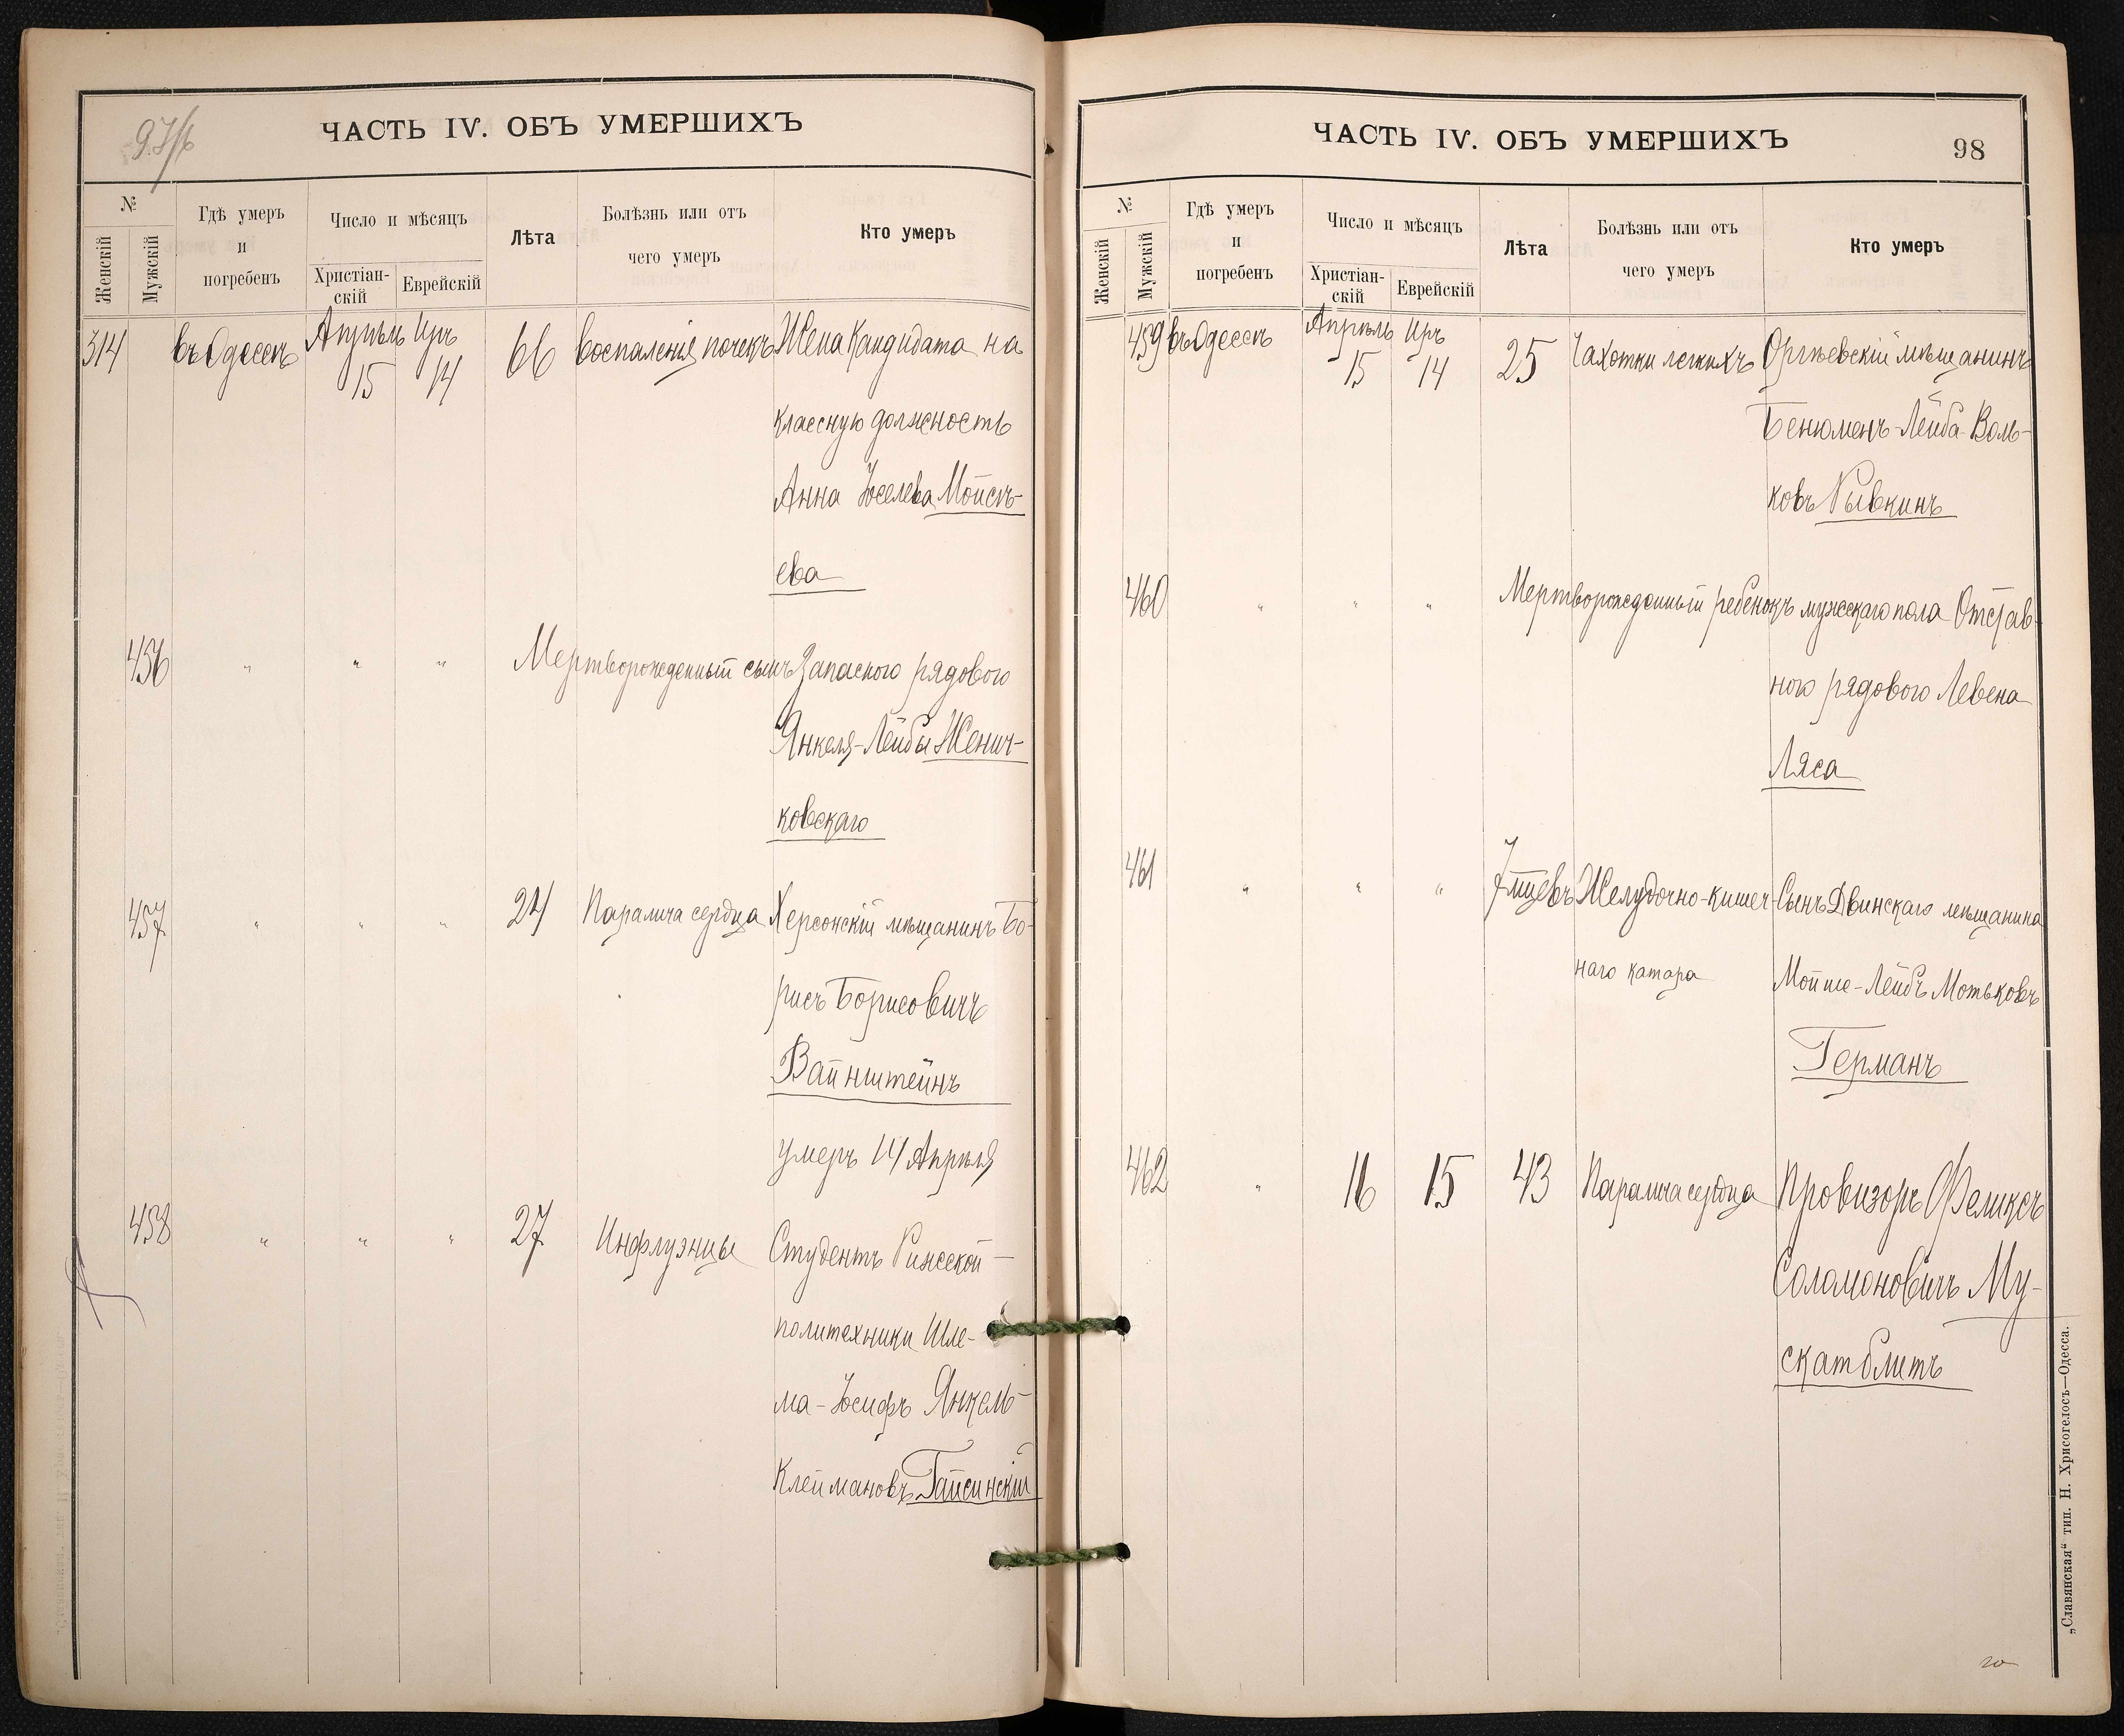 ЧАСТЬ IV. ОБЪ УМЕРШИХЪ
№
Женскій
Мужскій
Гдѣ умеръ
и
погребенъ
Число и мѣсяцъ
Христіан-
скій
Еврейскій
Лѣта
Болѣзнь или отъ
чего умеръ
Кто умеръ
314 въ Одессѣ Апрѣль Иръ 66 воспаленія почекъ Жена Кандидата на
15 14
классную должность
Анна Іоселева Мойсѣ-
ева
456 " " " Мертворожденный сынъ Запасного рядового
Янкеля-Лейбы Женич-
ковскаго
457 " " " 24 Паралича сердца Херсонскій мѣщанинъ Бо-
рисъ Борисовичъ
Вайнштейнъ
умеръ 14 Апрѣля
458 " " " 27 Инфлуэнцы Студентъ Рижской
политехники Шле-
ма-Іосифъ Янкель-
Клеймановъ Гайсинскій
ЧАСТЬ IV. ОБЪ УМЕРШИХЪ
98
№
Женскій
Мужскій
Гдѣ умеръ
и
погребенъ
Число и мѣсяцъ
Христіан-
скій
Еврейскій
Лѣта
Болѣзнь или отъ
чего умеръ
Кто умеръ
459 въ Одессѣ Апрѣль Иръ 25 Чахотки легкихъ Оргѣевскій мѣщанинъ
15 14
Бенюменъ-Лейба Воль-
ковъ Рывкинъ
460 " " " Мертворожденный ребенокъ мужескаго пола Отстав-
ного рядового Левена
Ляса
461 " " " 7 мцевъ Желудочно-кишеч- Сынъ Двинскаго мѣщанина
наго катара Мойше-Лейбъ Мотьковъ
Германъ
462 " 16 15 43 Паралича сердца Провизоръ Феликсъ
Соломоновичъ Му-
скатблитъ
„Славянская“ тип. Н. Хрисогелосъ—Одесса.